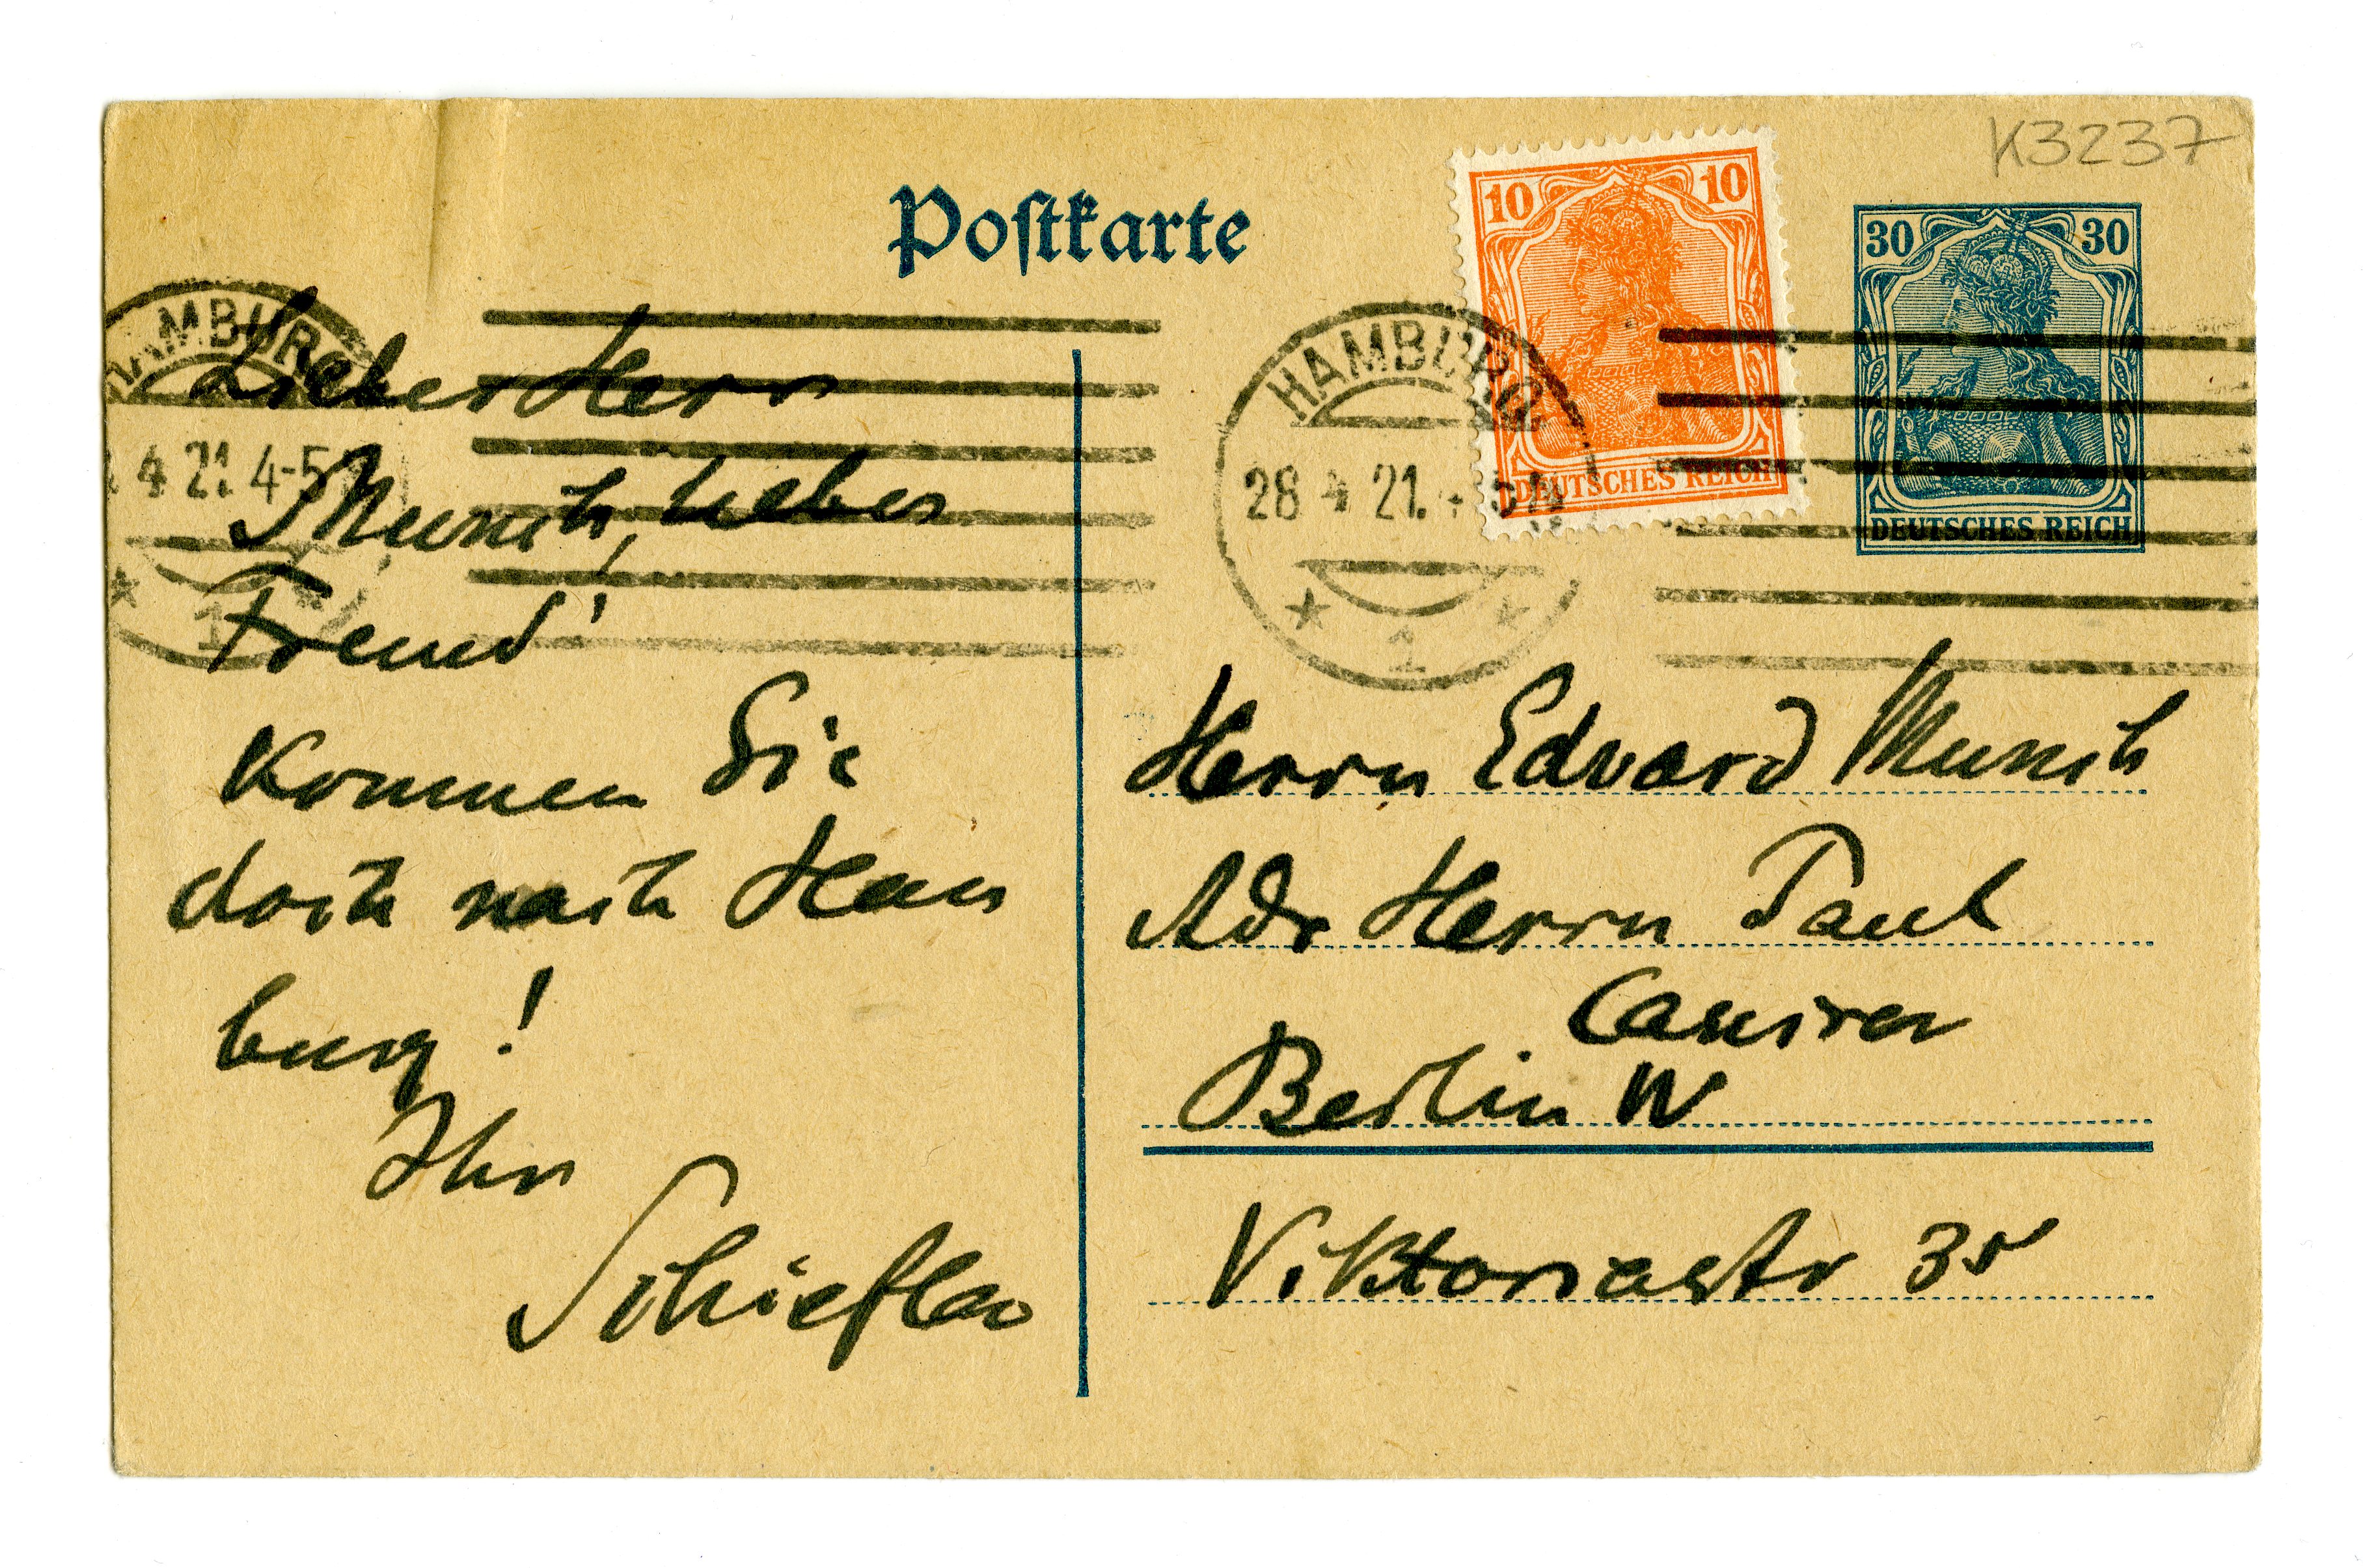 K3237
Postkarte
10 10
DEUTSCHES REICH
30 30
DEUTSCHES REICH
HAMBURG
4 21. 4-5
1
HAMBURG
28 4 21. 4-5N
1
Lieber Herr
Munch, lieber
Freund!
Kommen Sie
doch nach Ham
burg!
Ihr
Schiefler
Herrn Edvard Munch
Adr Herrn Paul
Cassirer
Berlin W
Viktoriastr 35